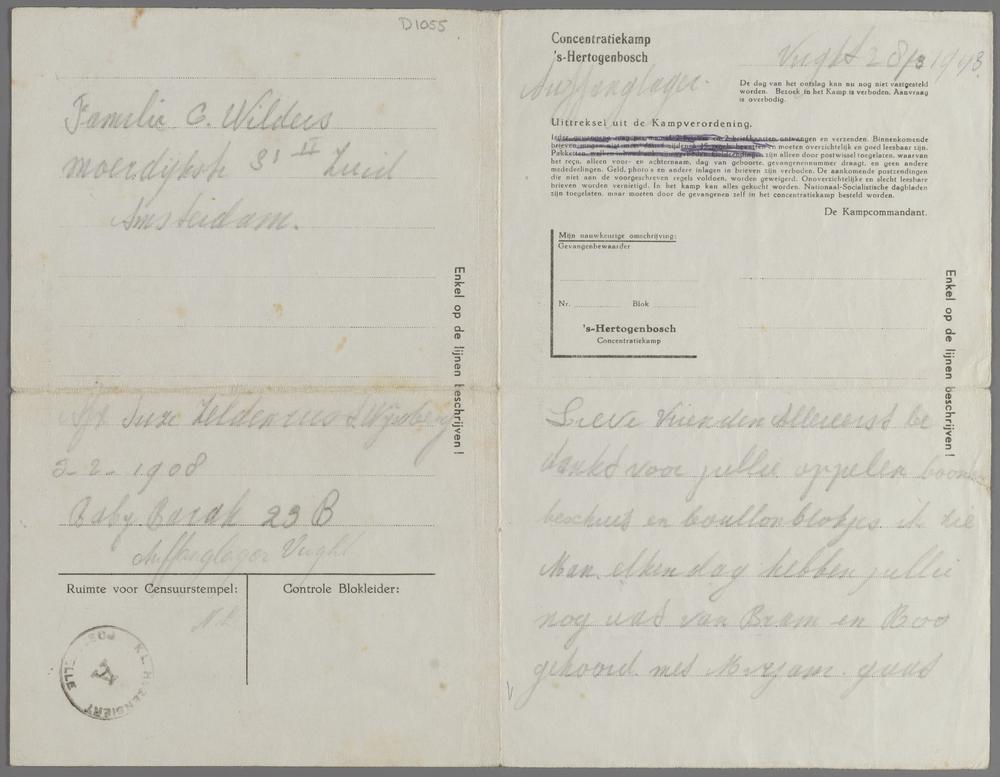 D1055
Familie C. Wilders
Moerdijkstr 31 II Zuid
Amsterdam.
Enkel op de lijnen beschrijven!
Afz Suze Zeldenrust Wijnberg
2-2-1908
Baby Barak 23 B
Auffanglager Vught
Ruimte voor Censuurstempel:
Controle Blokleider:
K.L. H ZENSIERT POSTSTELLE
Concentratiekamp
's-Hertogenbosch
Vught 28/3 1943
Auffanglager.
De dag van het ontslag kan nu nog niet vastgesteld
worden. Bezoek in het Kamp is verboden. Aanvraag
is overbodig.
Uittreksel uit de Kampverordening.
Ieder gevangene mag per maand 2 brieven en 2 briefkaarten ontvangen en verzenden. Binnenkomende
brieven mogen niet meer dan 15 regels bevatten en moeten overzichtelijk en goed leesbaar zijn.
Pakketten zijn alleen door postwissel toegelaten, waarvan
het reçu, alleen voor- en achternaam, dag van geboorte, gevangenennummer draagt, en geen andere
mededeelingen. Geld, photo's en andere inlagen in brieven zijn verboden. De aankomende postzendingen
die niet aan de voorgeschreven regels voldoen, worden geweigerd. Onoverzichtelijke en slecht leesbare
brieven worden vernietigd. In het kamp kan alles gekocht worden. Nationaal-Socialistische dagbladen
zijn toegelaten, maar moeten door de gevangenen zelf in het concentratiekamp besteld worden.
De Kampcommandant.
Mijn nauwkeurige omschrijving:
Gevangenbewaarder
Nr. Blok
's-Hertogenbosch
Concentratiekamp
Enkel op de lijnen beschrijven!
Lieve Vrienden Allereerst be
dankt voor jullie appelen boonen
beschuit en bouillonblokjes ik zie
Man elken dag hebben jullie
nog wat van Bram en Roo
gehoord. met Mirjam. gaat